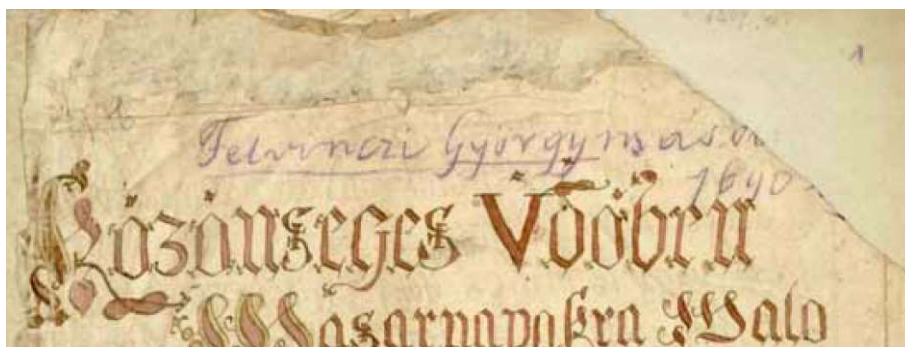 1
Felvinczi György másol
1690
Közönseges Vdöben
Wasarnapokra Walo